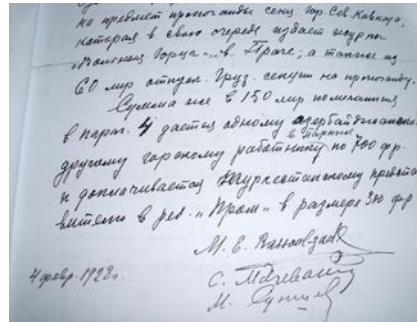 на предмет пропаганды секц. Гор. Сев. Кавказа,
которая в свою очередь издает журн.
"Вольные Горцы" в Праге; а также из
60 лир отпуск. Груз. секции на пропаганду.
Сумма же в 150 лир помещенная
в параг. 4 дается одному азербайджан
в Париже
другому горскому работнику по 700 фр.
и доплачивается Туркестанскому предста
вителю в ред. "Пром" в размере 300 фр
М. Е.
4 февр. 1928 г.
С.
М. Суншев